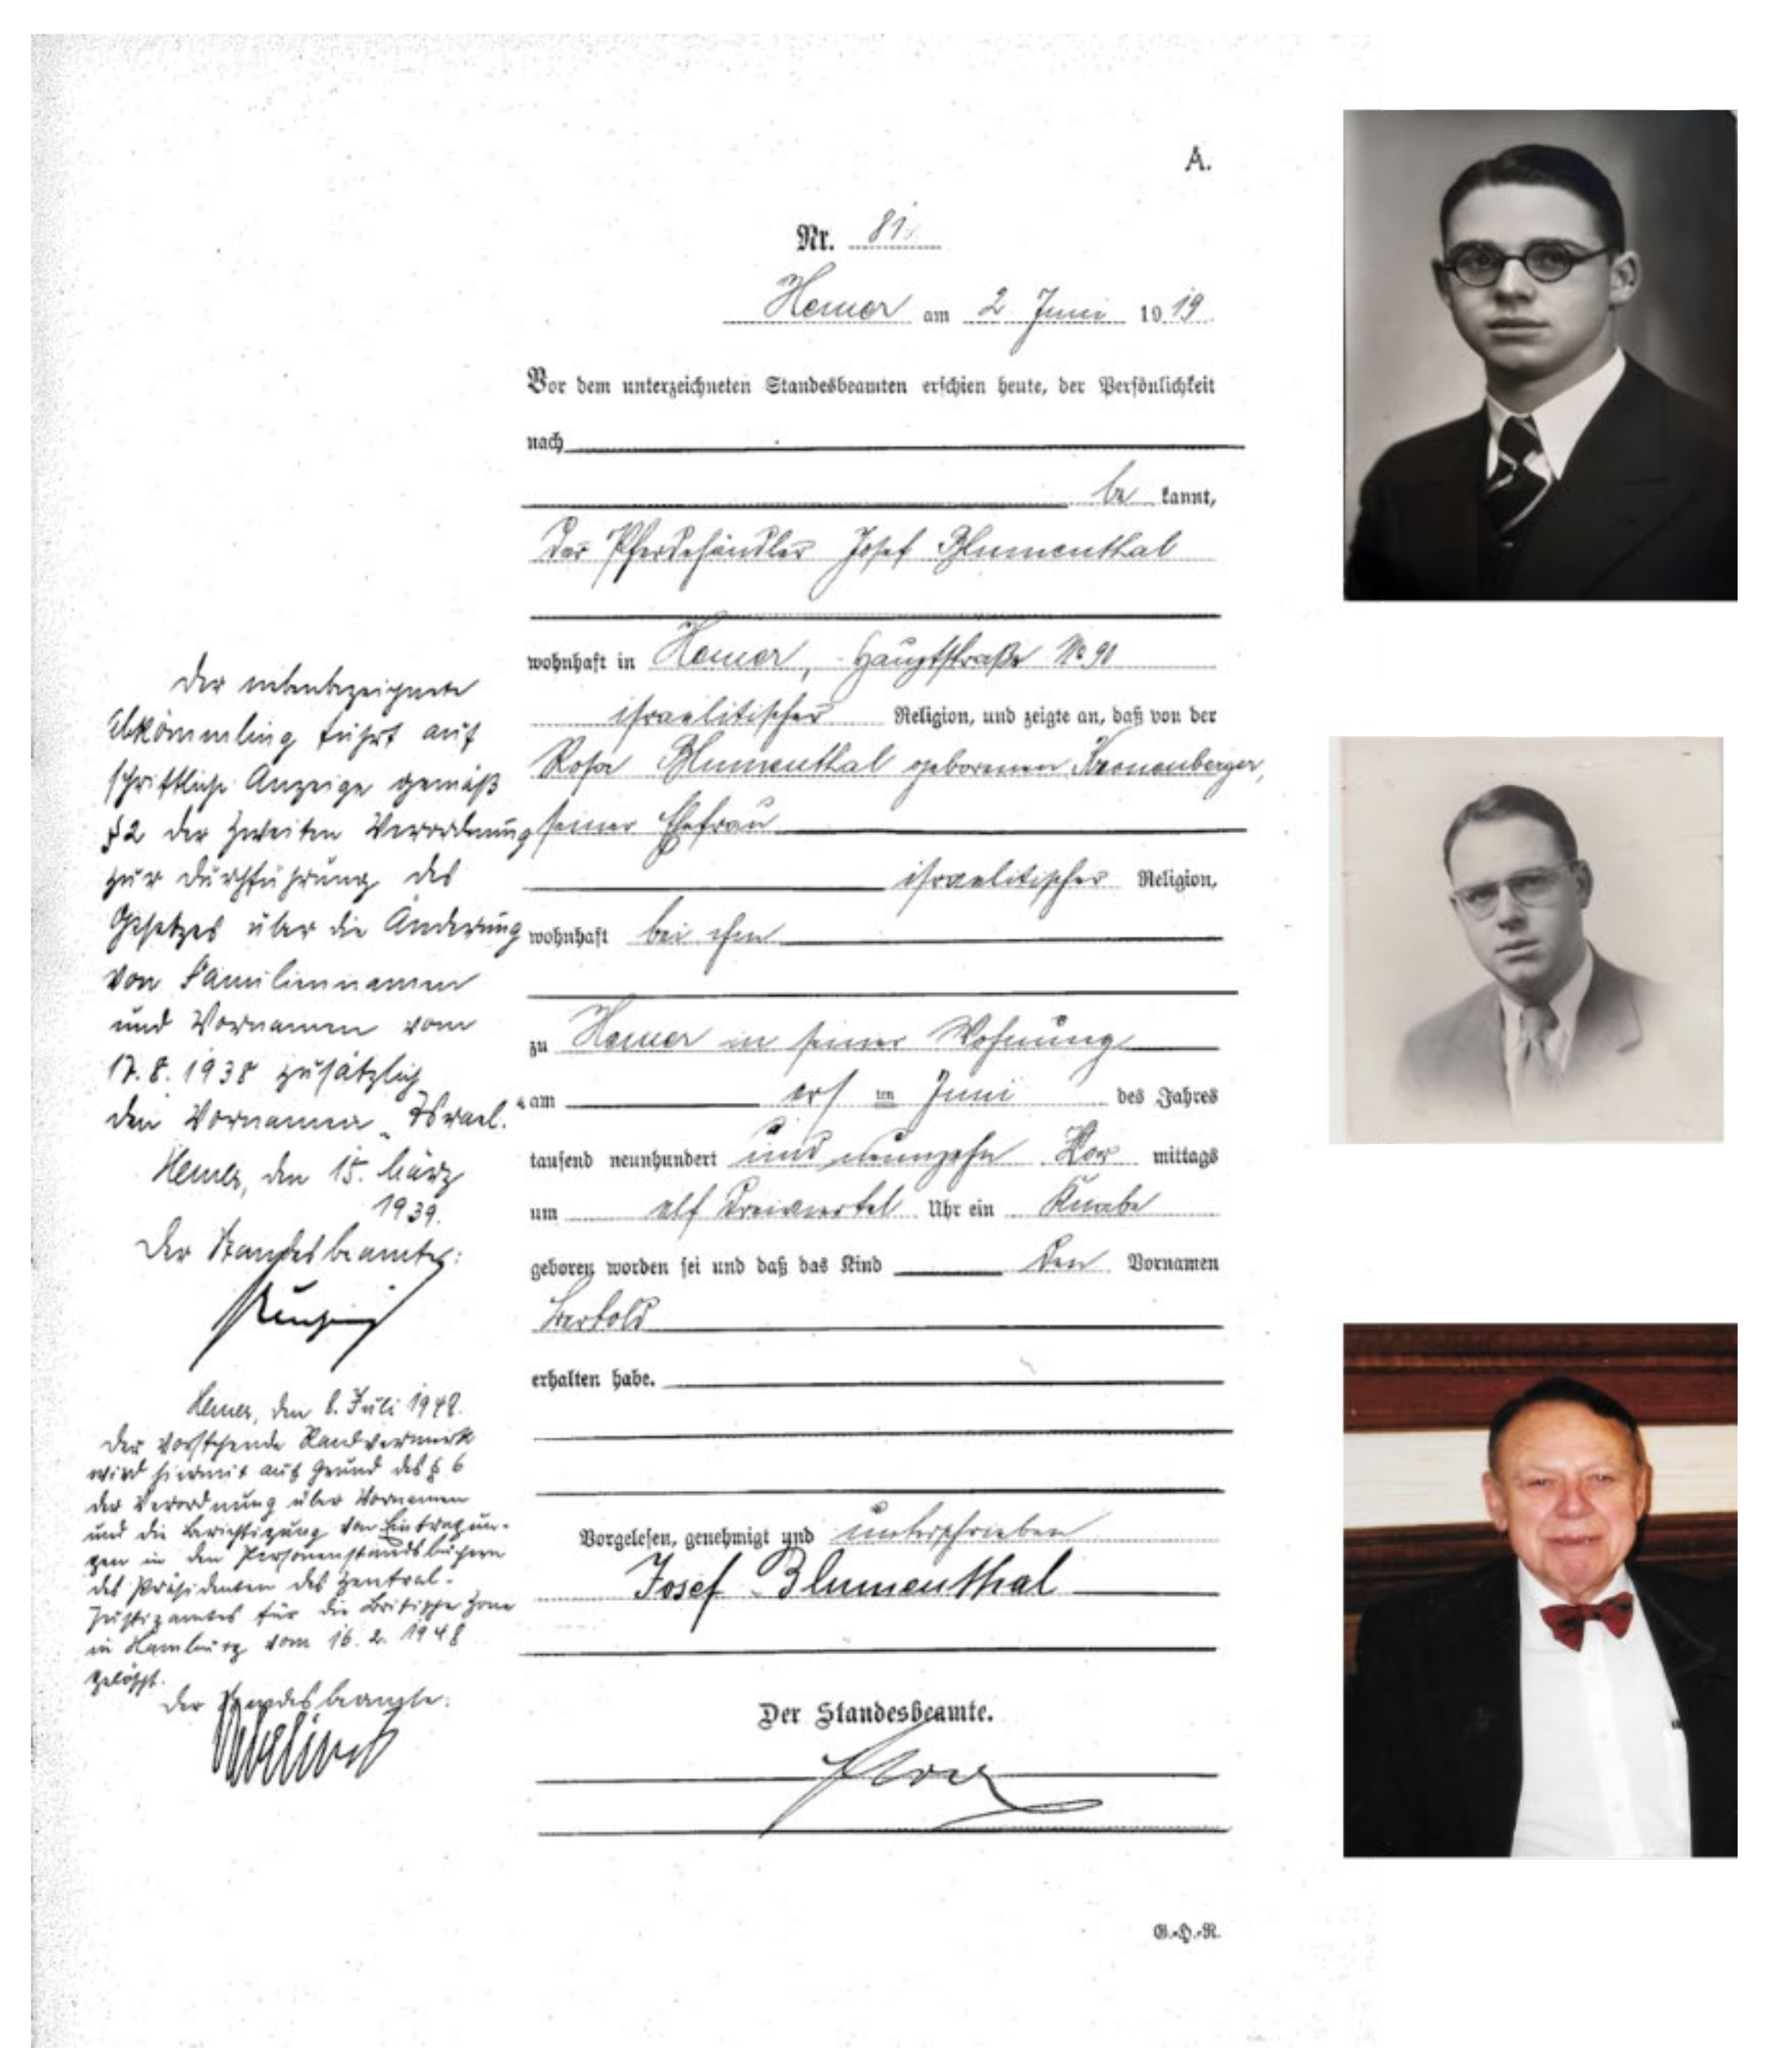 A.
Nr. 81.
Hemer am 2. Juni 1919.
Vor dem unterzeichneten Standesbeamten erschien heute, der Persönlichkeit
nach
be kannt,
der Pferdehändler Josef Blumenthal
wohnhaft in Hemer, Hauptstraße No 90
israelitischer Religion, und zeigte an, daß von der
Rosa Blumenthal geborenen Kronenberger,
seiner Ehefrau
israelitischer Religion,
wohnhaft bei ihm
zu Hemer in seiner Wohnung
am ersten Juni des Jahres
tausend neunhundert und neunzehn Vor mittags
um elf dreiviertel Uhr ein Knabe
geboren worden sei und daß das Kind den Vornamen
Bertold
erhalten habe.
Vorgelesen, genehmigt und unterschrieben
Josef Blumenthal
Der Standesbeamte.
G.-H.-R.
Der nebenbezeichnete
Abkömmling führt auf
schriftliche Anzeige gemäß
§2 der Zweiten Verordnung
zur Durchführung des
Gesetzes über die Änderung
von Familiennamen
und Vornamen vom
17.8.1938 zusätzlich
den Vornamen „Israel.
Hemer, den 15. März
1939.
Der Standesbeamte:
Hemer, den 8. Juli 1948.
Der vorstehende Randvermerk
wird hiermit auf Grund des § 6
der Verordnung über Vornamen
und die Berichtigung von Eintragun-
gen in den Personenstandsbüchern
des Präsidenten des Zentral-
Justizamtes für die Britische Zone
in Hamburg vom 16.2.1948
gelöscht.
Der Standesbeamte: